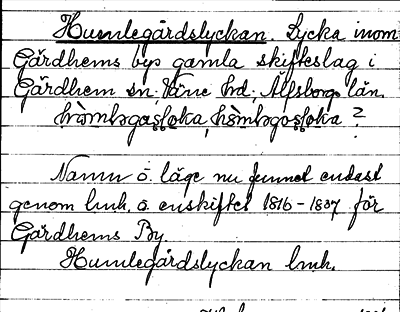 Humlegårdslyckan. Lycka inom
Gärdhems bys gamla skifteslag i
Gärdhem sn, Väne hd, Älfsborgs län.
?
Namn o. läge nu funnet endast
genom lmh. o. enskiftet 1816-1837 för
Gärdhems By.
Humlegårdslyckan lmh.